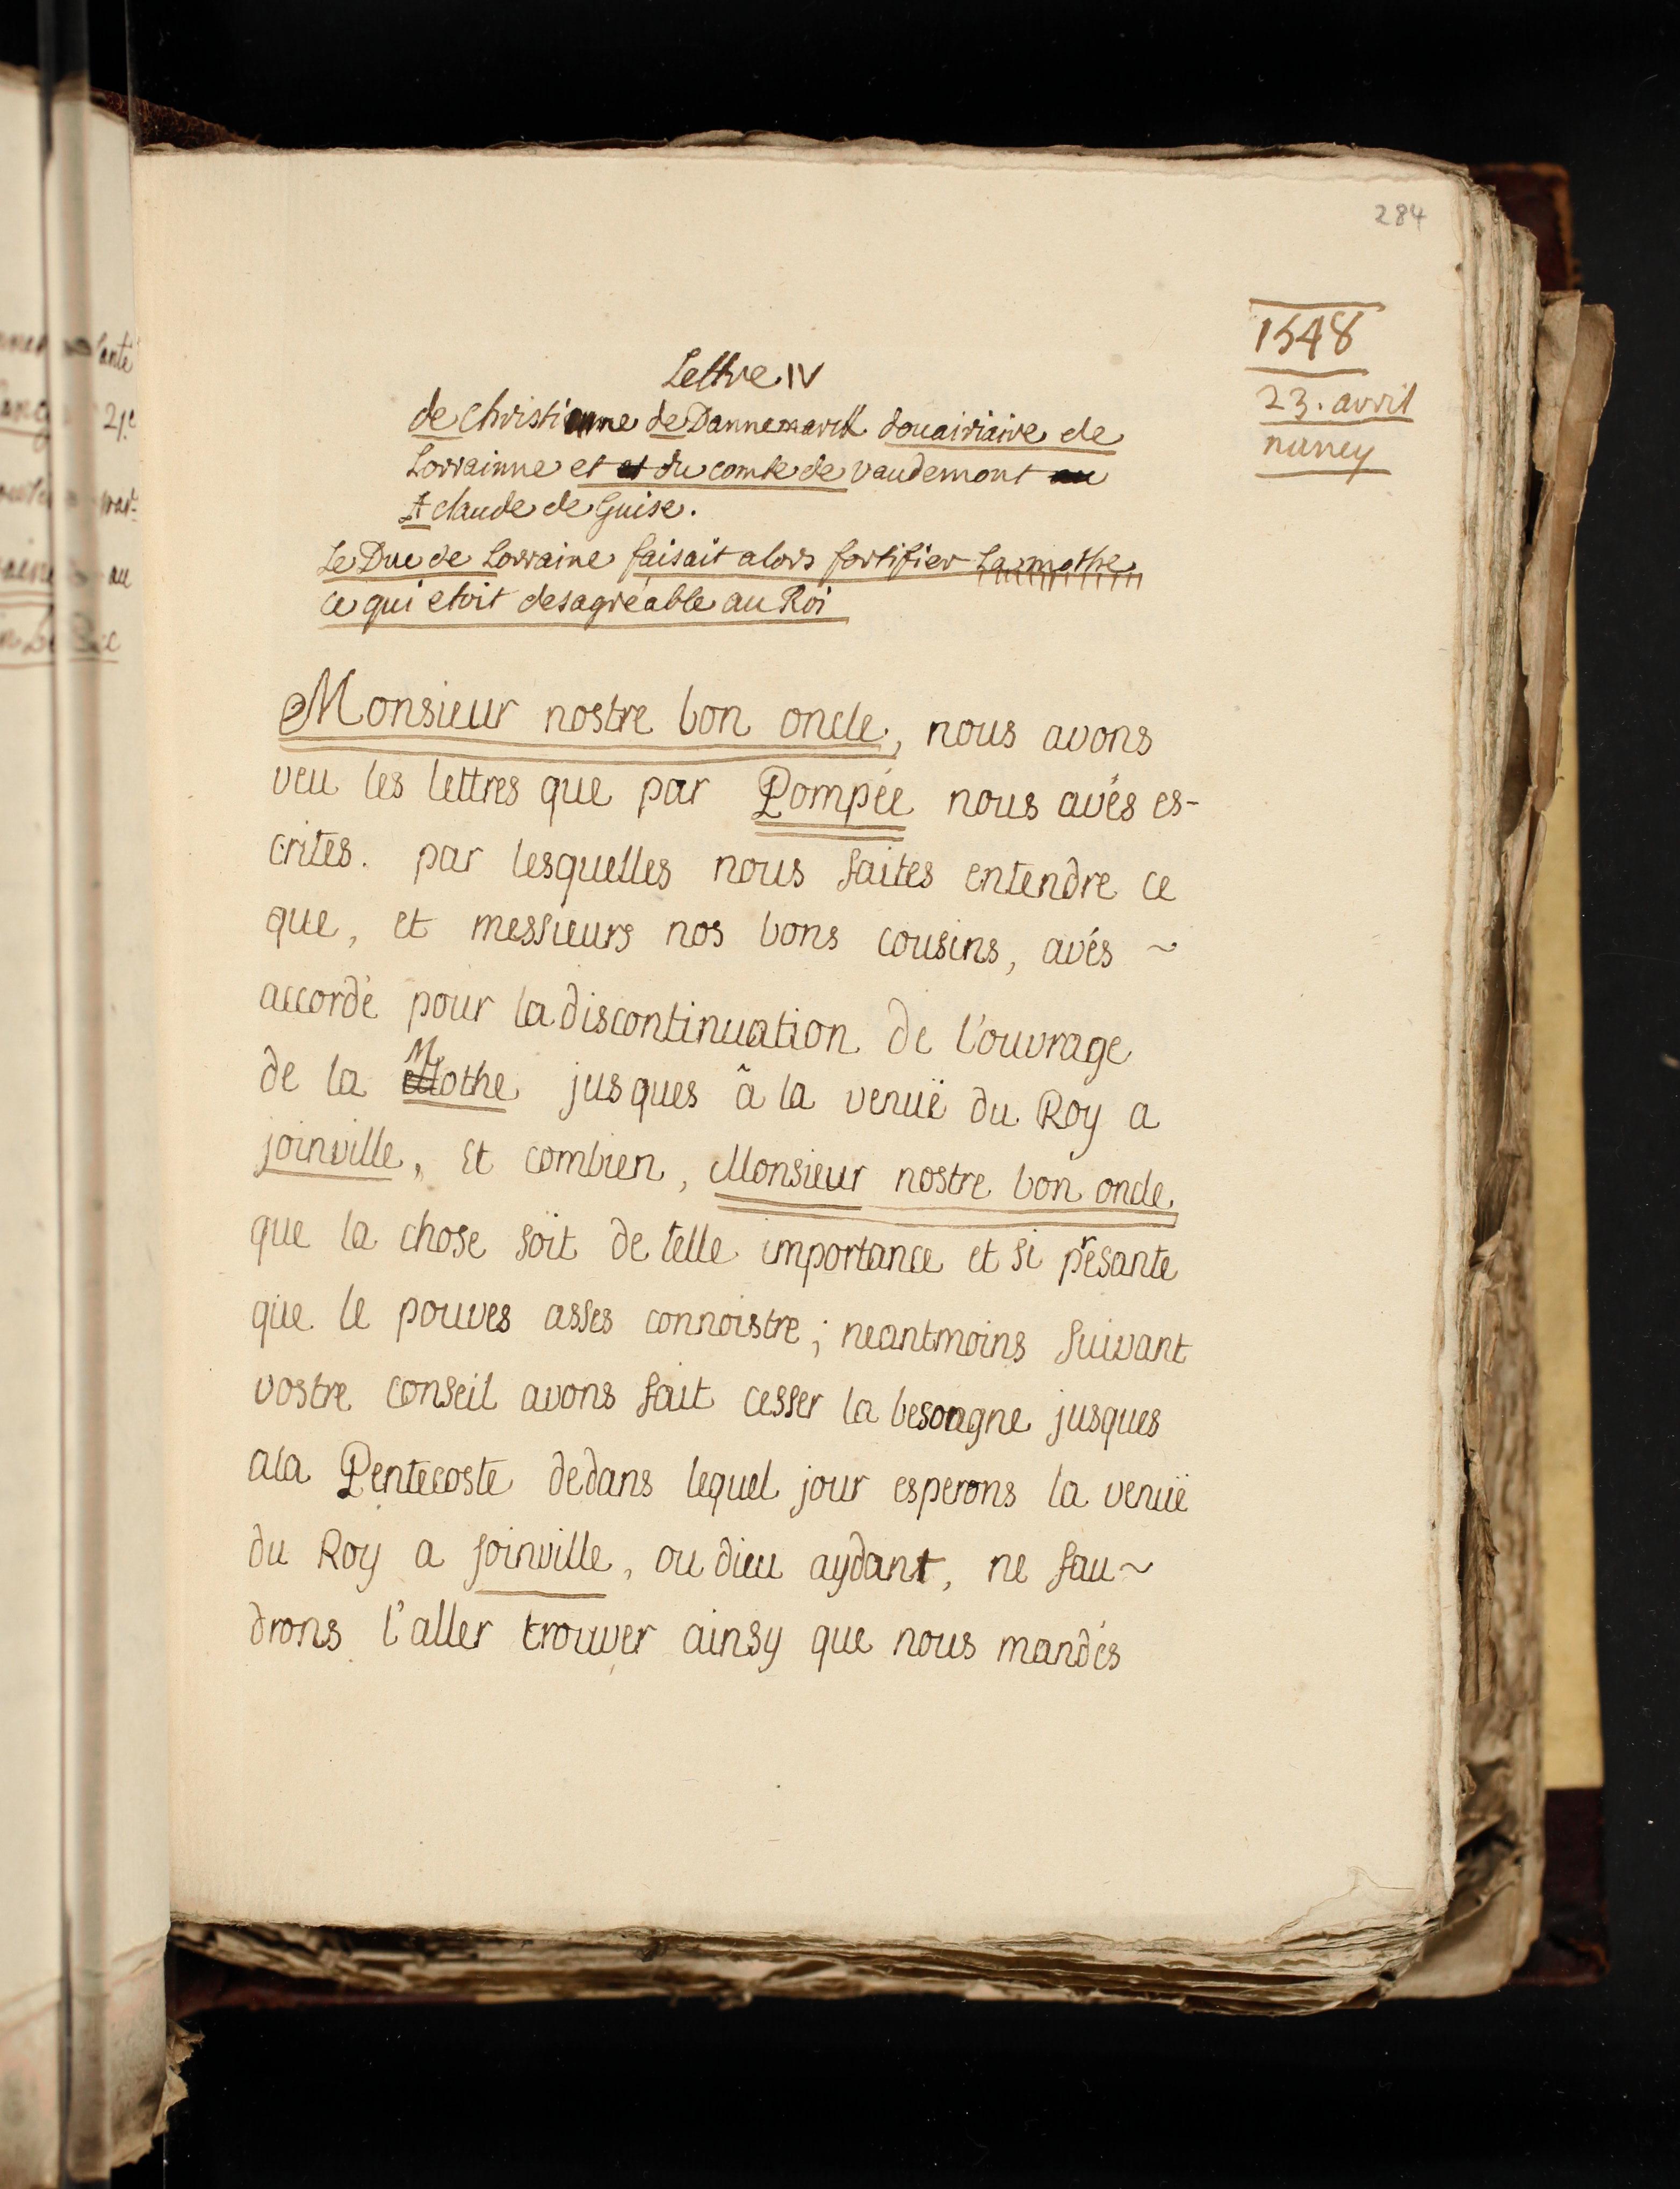 284
1548
23. avril
nancy
Lettre IV
de christienne de Dannemarck douairiaire de
Lorrainne et et du comte de vaudemont au
A claude de Guise.
Le Duc de Lorraine faisait alors fortifier La mothe
ce qui etoit desagréable au Roi
Monsieur nostre bon oncle, nous avons
veu les lettres que par Pompée nous avés es-
crites. par lesquelles nous faites entendre ce
que, et messieurs nos bons cousins, avés ~
accordé pour la discontinuation de l'ouvrage
de la Mothe jusques â la venuë du Roy a
joinville, Et combien, Monsieur nostre bon oncle
que la chose soit de telle importance et si presante
que le pouves asses connoistre; neantmoins suivant
vostre conseil avons fait cesser la besoagne jusques
ala Pentecoste dedans lequel jour esperons la venuë
du Roy a joinville, ou dieu aydant, ne fau~
drons l'aller trouver ainsy que nous mandés